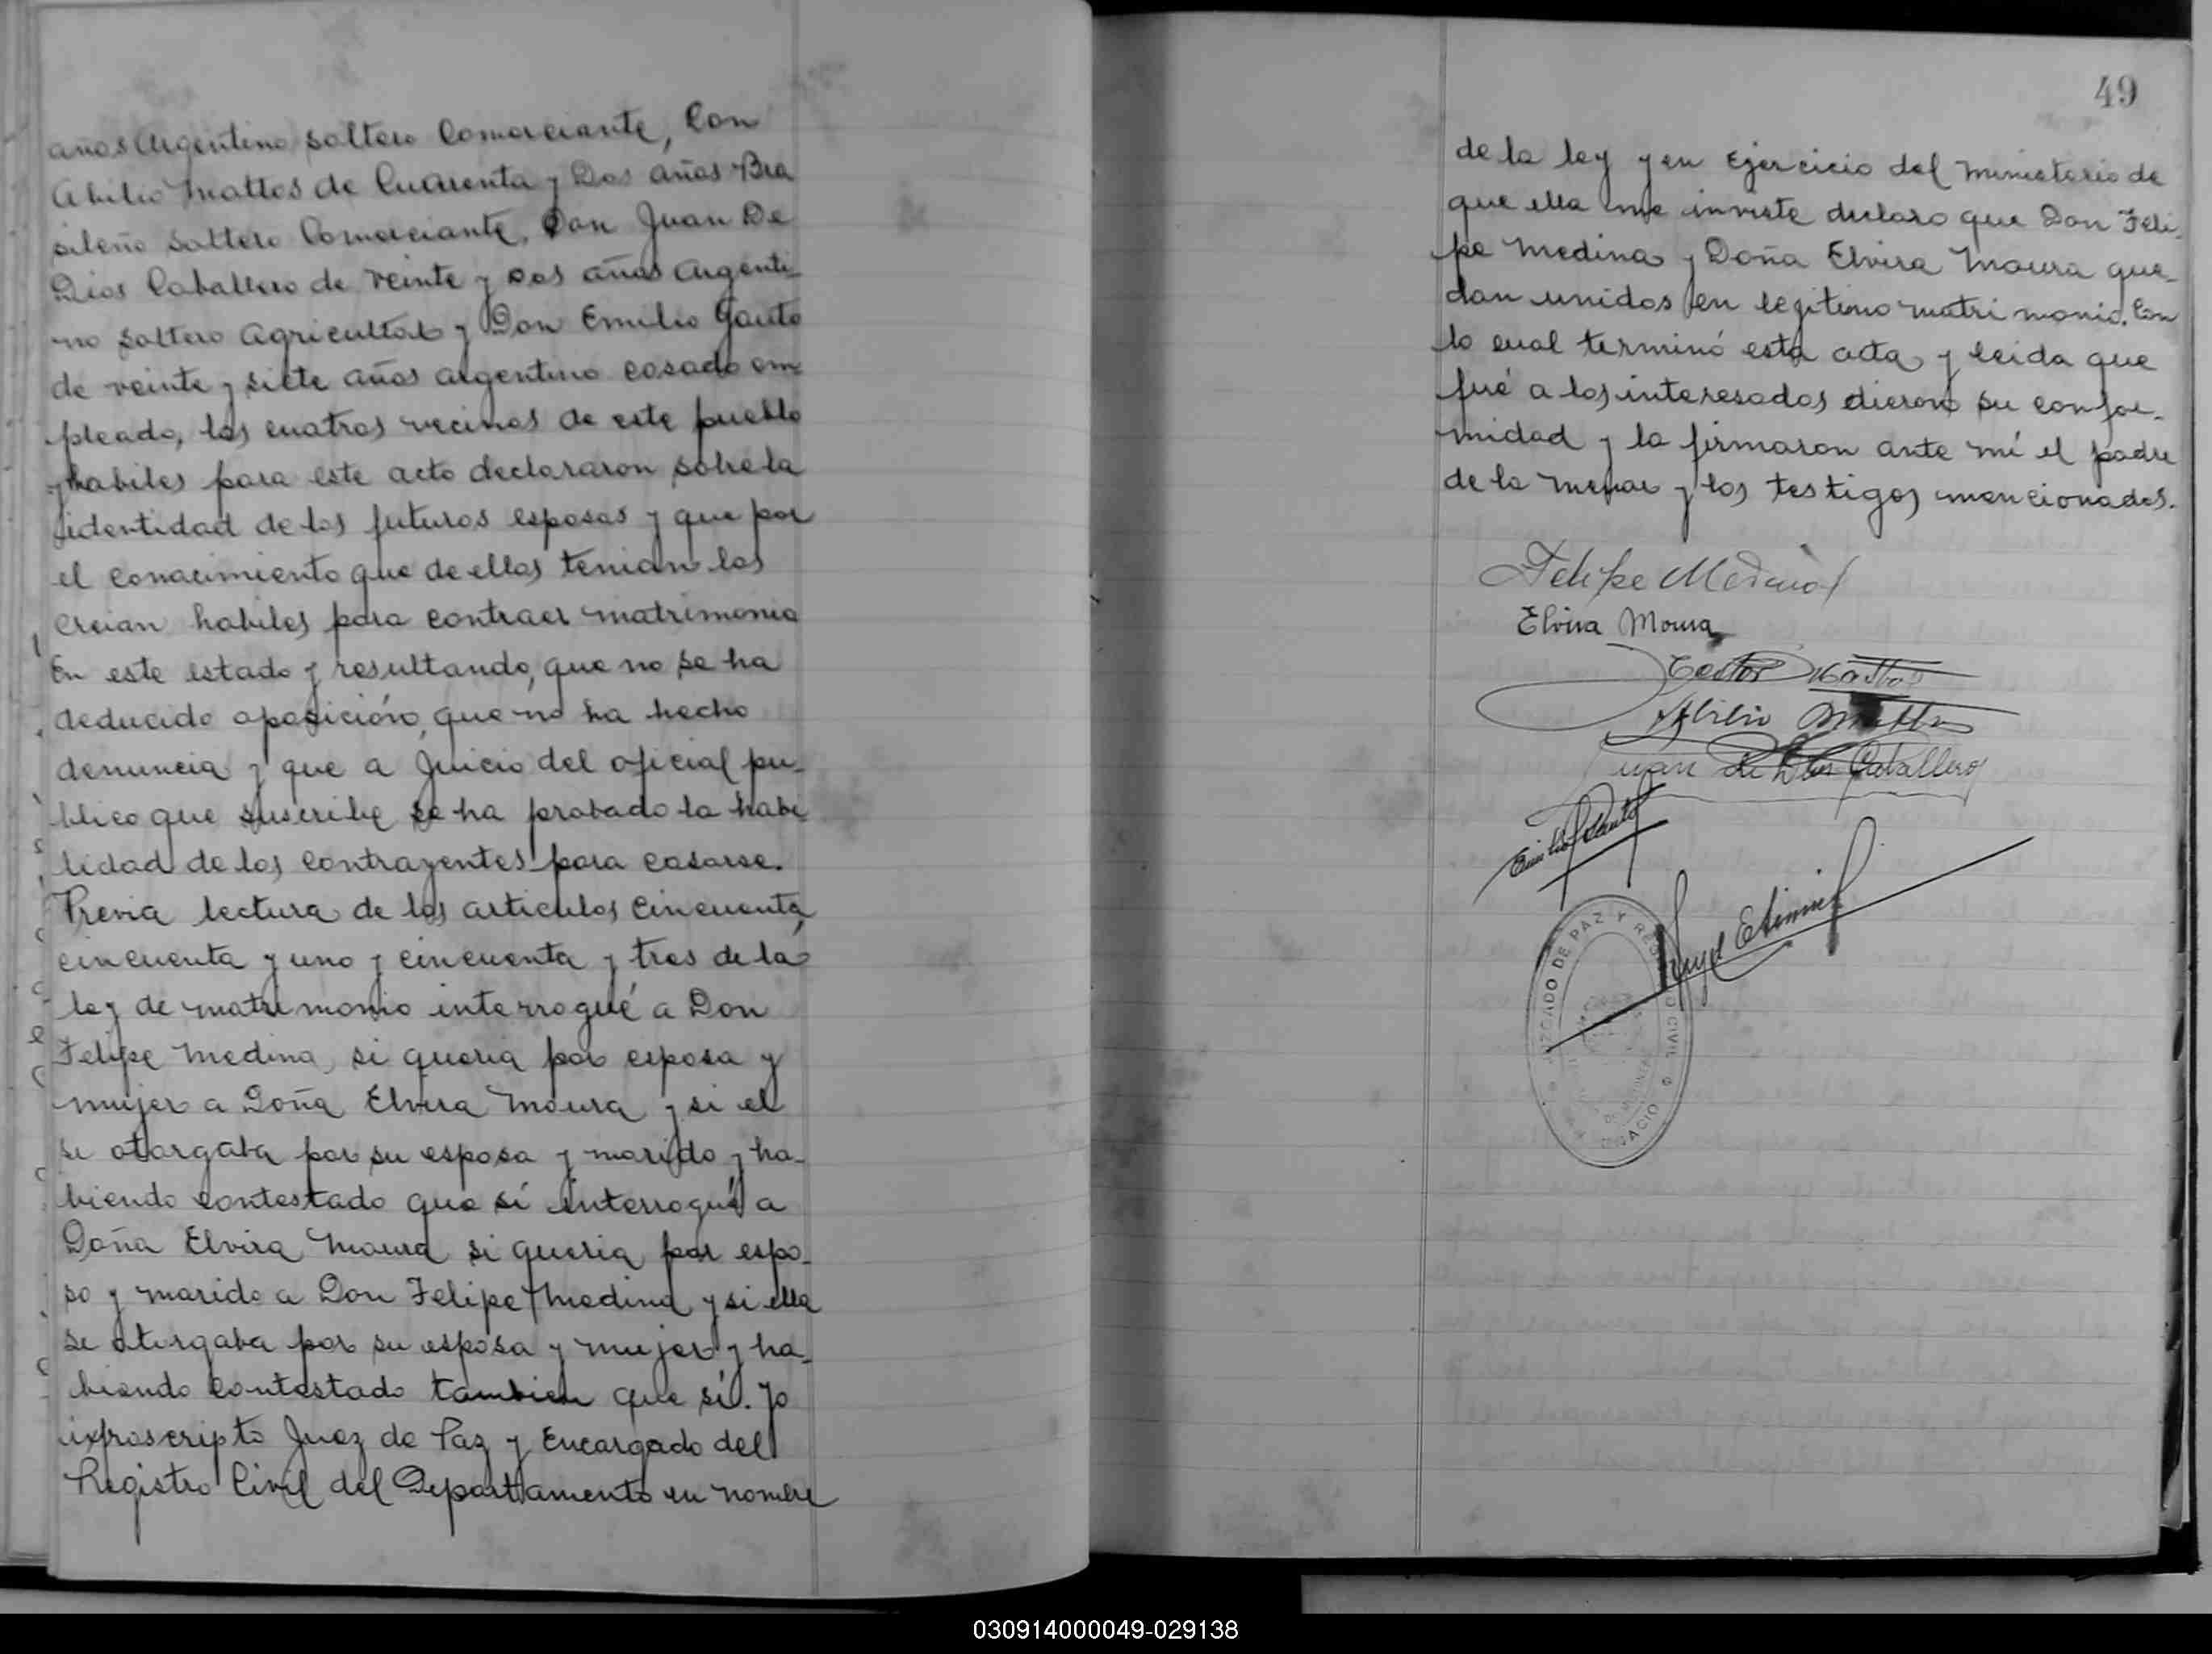 años Argentino soltero Comerciante, Con
Abilio Mattos de Cuarenta y Dos años Bra
sileño soltero Comerciante, Don Juan De
Dios Caballero de veinte y dos años Argenti-
no soltero Agricultor y Don Emilio Gauto
de veinte y siete años argentino casado em
pleado, los cuatros vecinos de este pueblo
y habiles para este acto declararon sobre la
identidad de los futuros esposos y que por
el conocimiento que de ellos tenian los
creian habiles para contraer matrimonio
En este estado y resultando, que no se ha
deducido oposición, que no ha hecho
denuncia y que a Juicio del oficial pu-
blico que suscribe se ha probado la habi
lidad de los contrayentes para casarse.
Previa lectura de los articulos cincuenta,
cincuenta y uno y cincuenta y tres de la
ley de matrimonio interrogué a Don
Felipe Medina si queria por esposa y
mujer a Doña Elvira Moura y si el
se otorgaba por su esposa y marido y ha-
biendo contestado que sí interrogué a
Doña Elvira Moura si queria por espo-
so y marido a Don Felipe Medina y si ella
se otorgaba por su esposa y mujer y ha-
biendo contestado tambien que sí. Yo
infrascripto Juez de Paz y Encargado del
Registro Civil del Departamento en nombre
49
de la ley y en Ejercicio del ministerio de
que ella me inviste declaro que Don Feli-
pe Medina y Doña Elvira Moura que-
dan unidos en legitimo matrimonio. Con
lo cual terminó esta acta y leida que
fué a los interesados dieron su confor-
midad y la firmaron ante mí el padre
de la menor y los testigos mencionados.
Felipe Medina
Elvira Moura
Abilio Mattos
Juan de Dios Caballero
Emilio Gauto
Angel
JUZGADO DE PAZ Y REGISTRO CIVIL
030914000049-029138